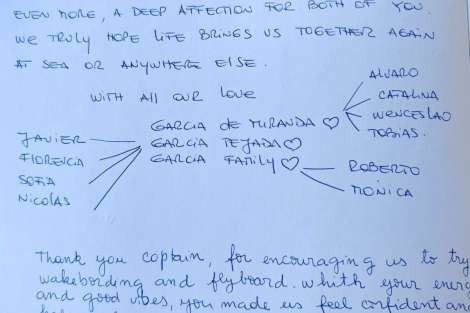 EVEN MORE, A DEEP AFFECTION FOR BOTH OF YOU.
WE TRULY HOPE LIFE BRINGS US TOGETHER AGAIN
AT SEA OR ANYWHERE ELSE.
WITH ALL OUR LOVE
GARCIA de MIRANDA ♡
ALVARO
CATALINA
WENCESLAO
TOBIAS.
GARCIA TEJADA ♡
JAVIER
FLORENCIA
SOFIA
NICOLAS
GARCIA FAMILY ♡
ROBERTO
MONICA
Thank you captain, for encouraging us to try
wakebording and flyboard. Whith your energ
and good vibes, you made us feel confident and